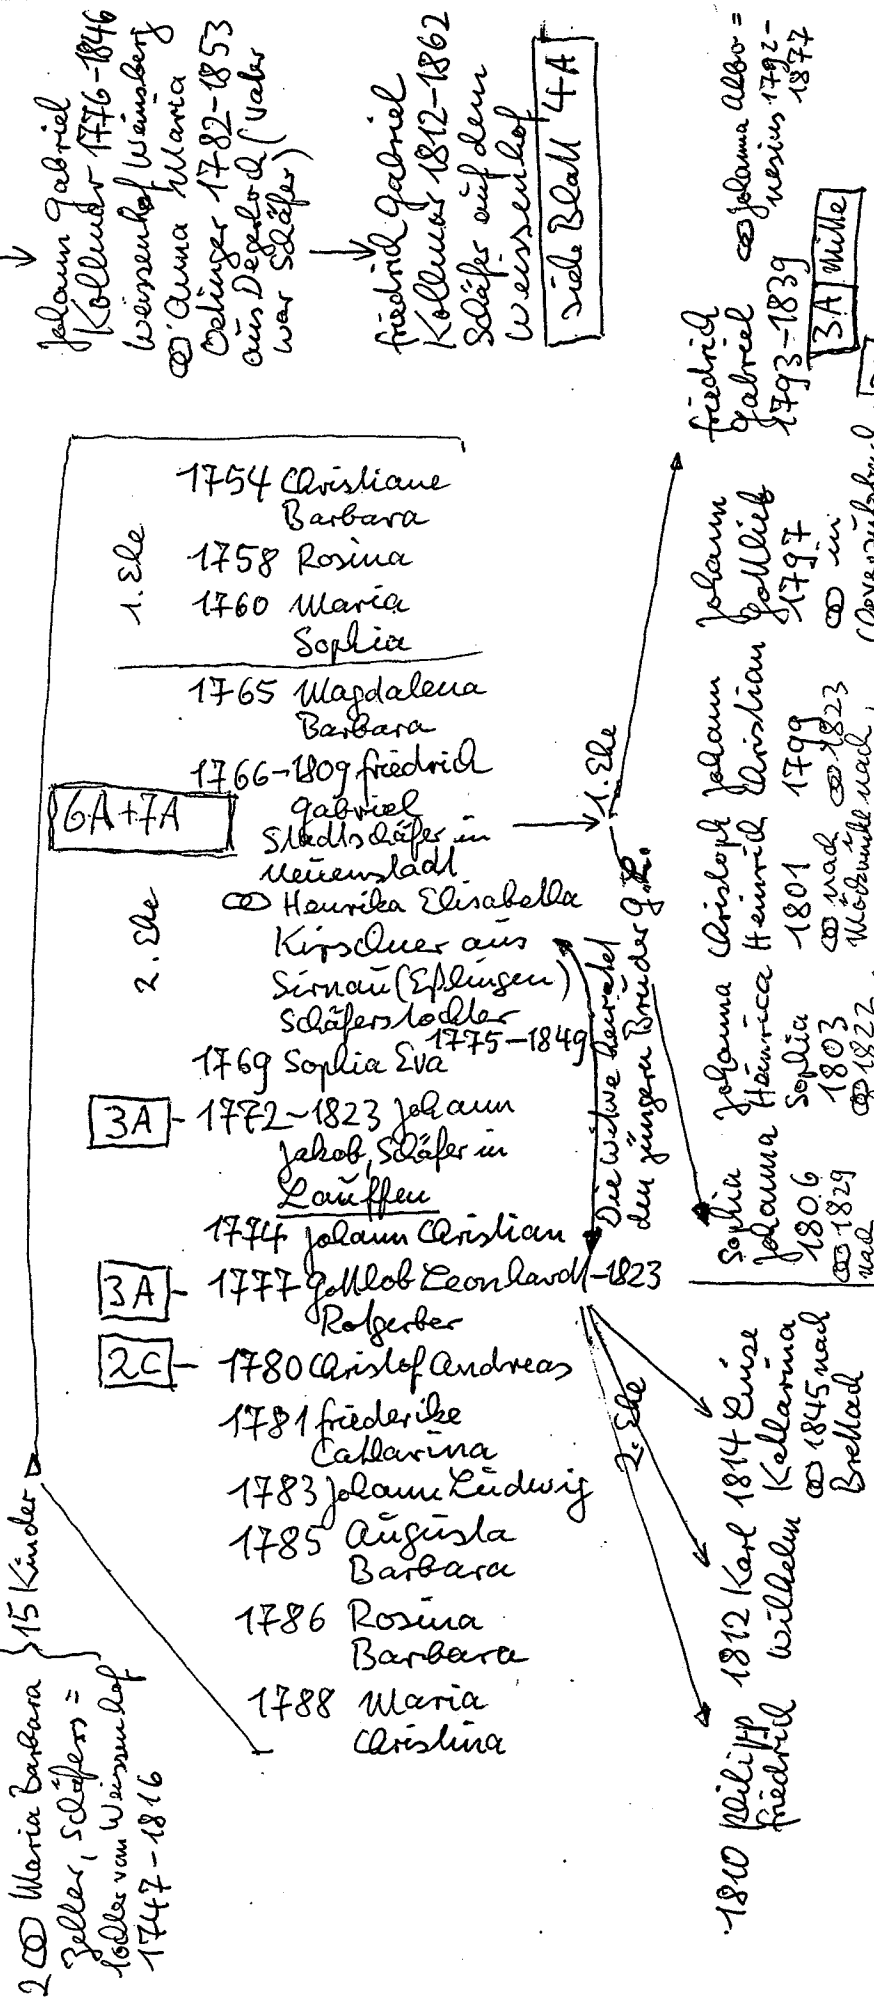 Johann Gabriel
Kollmar 1776-1846
Weissenhof Weinsberg
∞ Anna Maria
Oelinger 1782-1853
aus Degerloch (Vater
war Schäfer)
friedrich Gabriel
Kollmar 1812-1862
Schäfer auf dem
Weissenhof
siehe Blatt 4A
2 ∞ Maria Barbara
Zeller, Schäfers=
tochter vom Weissenhof
1747-1816
15 Kinder
1. Ehe
1754 Christiane
Barbara
1758 Rosina
1760 Maria
Sophia
2. Ehe
1765 Magdalena
Barbara
1766-1809 friedrich
Gabriel
6A+7A
Stadtschäfer in
Neuenstadt
∞ Henrika Elisabetha
Kirschner aus
Sirnau (Eßlingen)
Schäferstochter
1775-1849
1769 Sophia Eva
3A - 1772-1823 Johann
Jakob, Schäfer in
Lauffen
1774 Johann Christian
3A - 1777 Gottlob Leonhardt -1823
Rotgerber
2C - 1780 Christof Andreas
1781 friederike
Catharina
1783 Johann Ludwig
1785 Augusta
Barbara
1786 Rosina
Barbara
1788 Maria
Christina
Die Witwe heiratet
den jüngern Bruder G.L.
1. Ehe
friedrich
Gabriel
1793-1839
∞ Johanna
1792-
1877
3A Mitte
Johann
Gottlieb
1797
∞ in
Johann
Christian
1799
∞ 1823
Christoph
Heinrich
1801
∞ nach
Johanna
Heinrica
Sophia
1803
∞ 1822
Sophia
Johanna
1806
∞ 1829
nach
2. Ehe
1814 Luise
Katharina
∞ 1845 nach
Brettach
1812 Karl
Wilhelm
1810 Philipp
friedrich